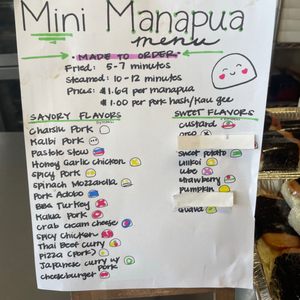 Mini Manapua
menu
- MADE TO ORDER -
Fried: 5-7 minutes
Steamed: 10-12 minutes
Prices: $1.69 per manapua
$1.00 per pork hash/kau gee
SAVORY FLAVORS
Charsiu Pork
Kalbi Pork
Pastele Stew
Honey Garlic Chicken
Spicy Pork
Spinach Mozzarella
Pork Adobo
BBQ Turkey
Kalua Pork
Crab Cream Cheese
Spicy Chicken
Thai Beef Curry
Pizza (Pork)
Japanese Curry w/
Pork
Cheeseburger
SWEET FLAVORS
Custard
Oreo
Sweet Potato
Lilikoi
Ube
Strawberry
Pumpkin
Guava